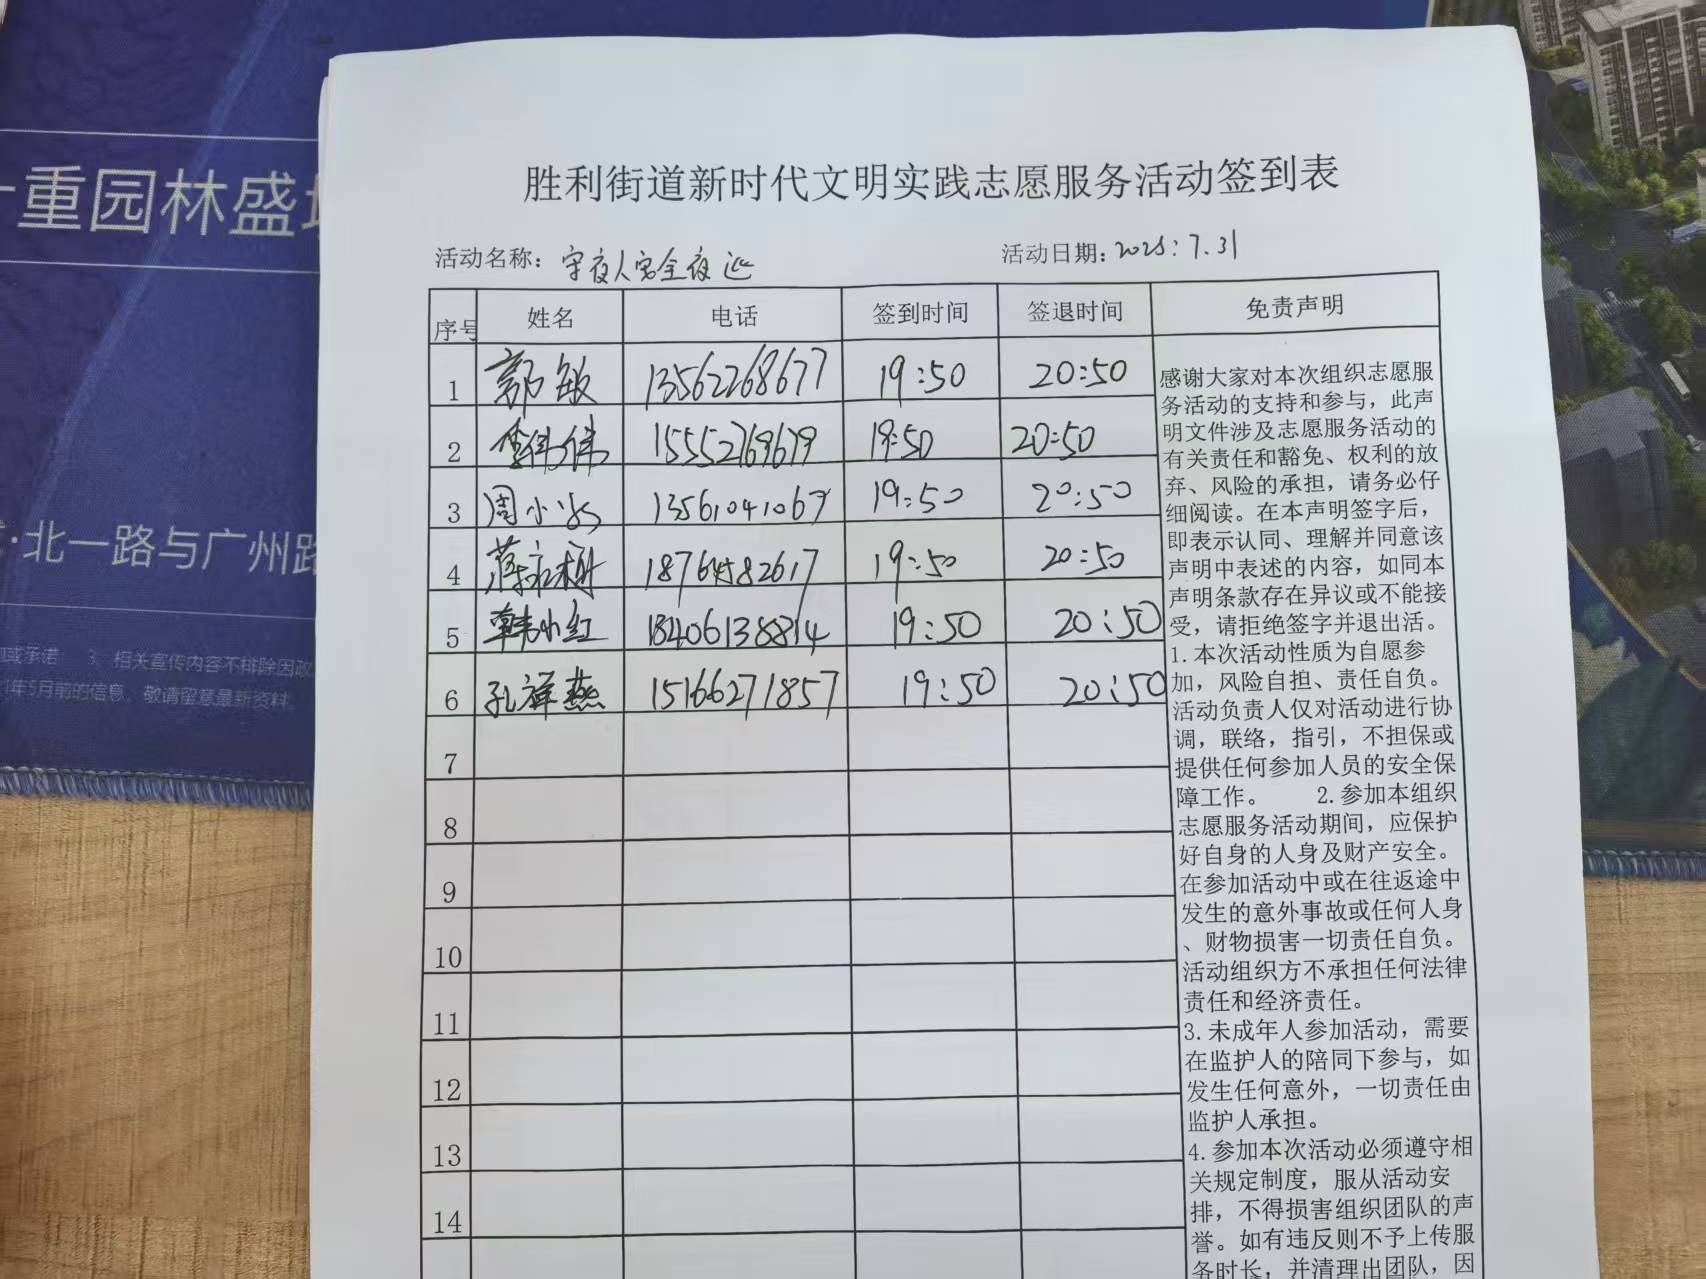 重园林盛
北一路与广州路
相关宣传内容不排除因政
年5月前的信息，敬请留意最新资料。
胜利街道新时代文明实践志愿服务活动签到表
活动名称：守夜人安全夜巡 活动日期：2025:7.31
序号 姓名 电话 签到时间 签退时间 免责声明
1 郭敏 13562268677 19:50 20:50
2 李伟伟 15552769679 19:50 20:50
3 周小 13561041067 19:50 20:50
4 蒋 18764582617 19:50 20:50
5 韩小红 18406138814 19:50 20:50
6 孔祥燕 15166271857 19:50 20:50
7
8
9
10
11
12
13
14
感谢大家对本次组织志愿服
务活动的支持和参与，此声
明文件涉及志愿服务活动的
有关责任和豁免、权利的放
弃、风险的承担，请务必仔
细阅读。在本声明签字后，
即表示认同、理解并同意该
声明中表述的内容，如同本
声明条款存在异议或不能接
受，请拒绝签字并退出活。
1.本次活动性质为自愿参
加，风险自担、责任自负。
活动负责人仅对活动进行协
调，联络，指引，不担保或
提供任何参加人员的安全保
障工作。 2.参加本组织
志愿服务活动期间，应保护
好自身的人身及财产安全。
在参加活动中或在往返途中
发生的意外事故或任何人身
、财物损害一切责任自负。
活动组织方不承担任何法律
责任和经济责任。
3.未成年人参加活动，需要
在监护人的陪同下参与，如
发生任何意外，一切责任由
监护人承担。
4.参加本次活动必须遵守相
关规定制度，服从活动安
排，不得损害组织团队的声
誉。如有违反则不予上传服
务时长；并清理出团队，因